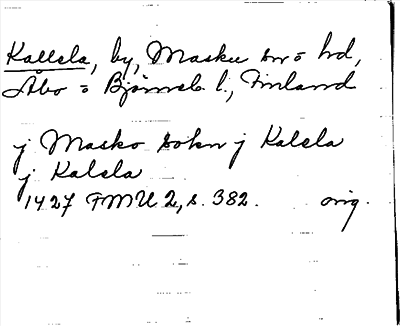 Kallela, by, Masku sn o hd,
Åbo o Björneb. l., Finland
j Masko sokn j Kalela
j Kalela
1427 FMU 2, s. 382. orig.